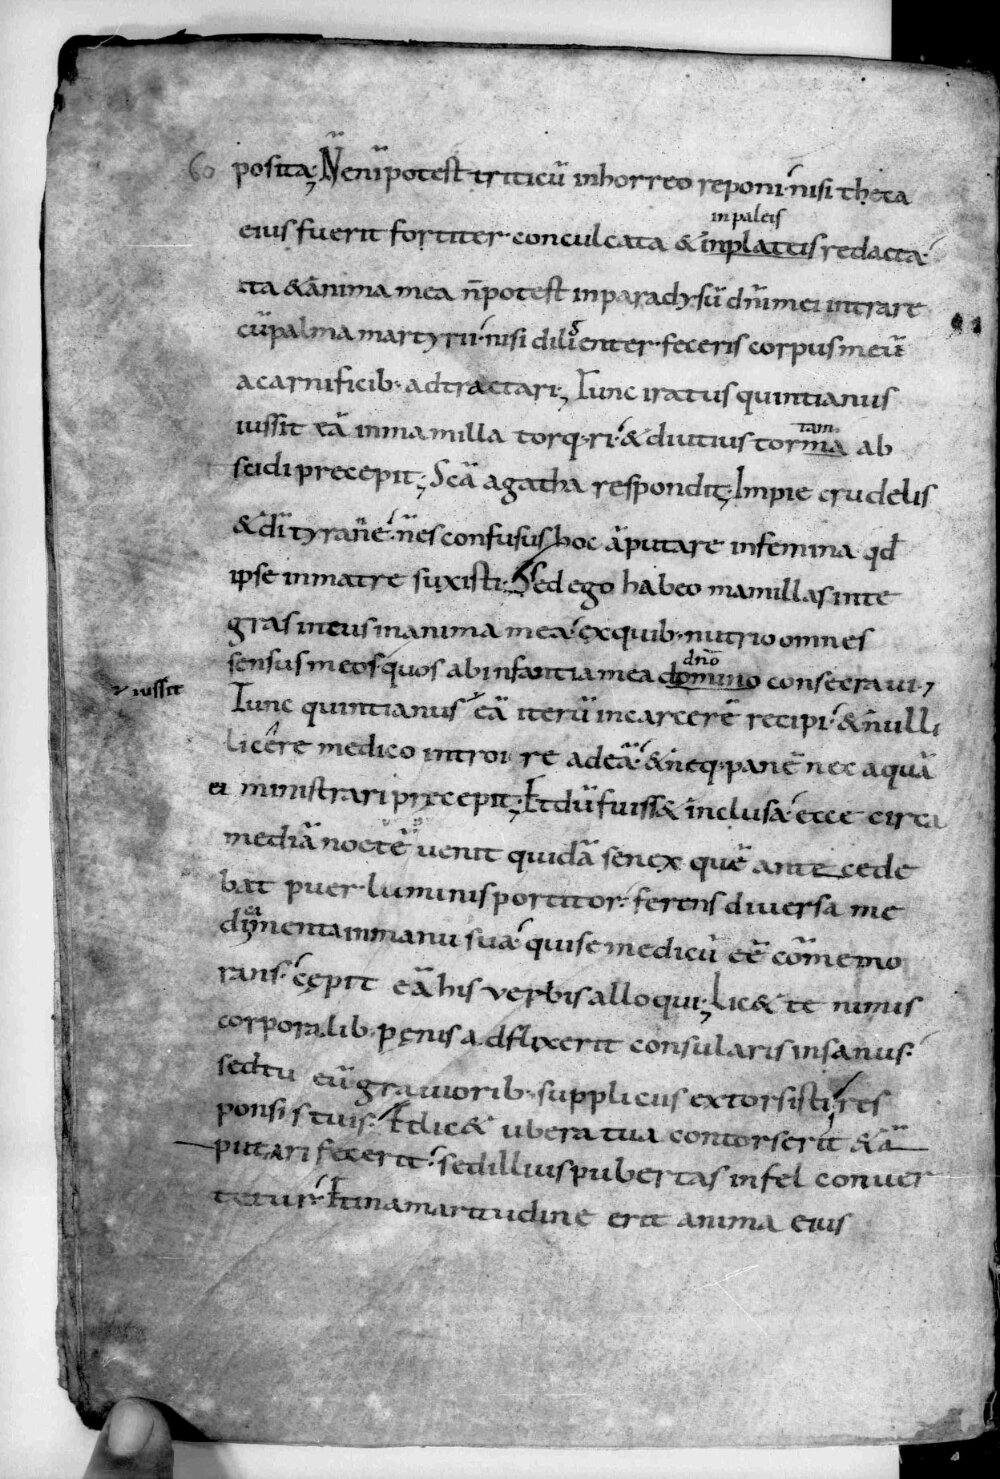 60 positę; N̄ enī potest triticū inhorreo reponi· nisi theca
in paleis
eius fuerit fortiter· conculcata & inplattis redacta·
ita & anima mea n̄ potest inparadysū dn̄i mei intrare
cū palma martyrii· nisi diligenter· feceris corpus meū
acarnificib· adtractari; Tunc iratus quintianus
tam
iussit eā inmamilla torq·ri· & diutius torma ab
scidi precepit; Scā agatha respondit; Impie crudelis
& dīre tyranne· n̄ es confusus hoc āputare infemina qd̄
ipse inmatre suxisti· Sed ego habeo mamillas inte
gras intus inanima mea· ex quib· nutrio omnes
dn̄o
sensus meos quos ab infantia mea domino consecraui·;
iussit
Tunc quintianus eā iterū incarcerē recipi· & nulli
licere medico introire adeā· & neq· panē nec aquā
ei ministrari precepit; Et dū fuiss& inclusa· ecce circa
mediā noctē uenit quidā senex quē ante cede
bat puer· luminis portitor· ferens diuersa me
dicamenta inmanu sua· qui se medicū eē cōmemo
rans· cępit eā his verbis alloqui; Lic& te nimis
corporalib· pęnis adflixerit consularis insanus·
sed tu eū grauiorib· suppliciis extorsisti res
ponsis tuis· Et lic& ubera tua contorserit & ā
putari fecerit· sed illius pubertas in fel conuer
tetur· Et inamaritudine erit anima eius